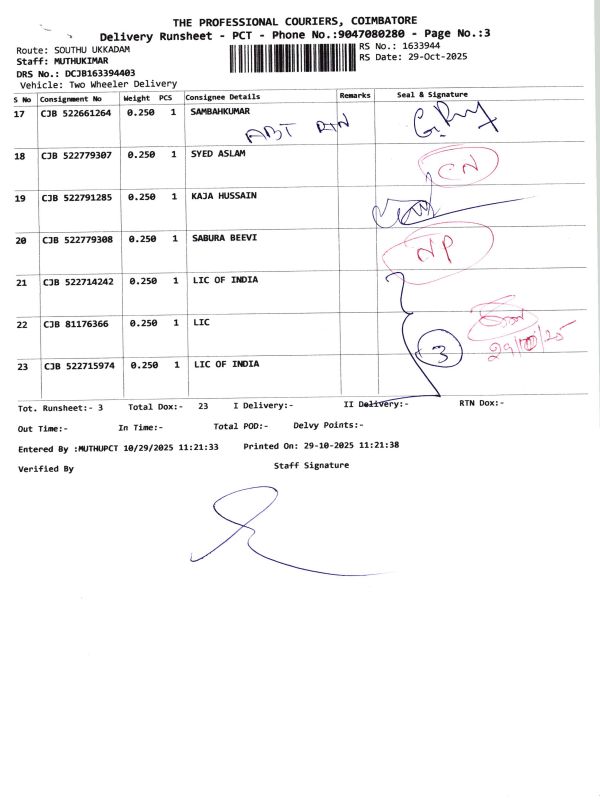 THE PROFESSIONAL COURIERS, COIMBATORE
Delivery Runsheet - PCT - Phone No.:9047080280 - Page No.:3
Route: SOUTHU UKKADAM
RS No.: 1633944
Staff: MUTHUKIMAR
RS Date: 29-Oct-2025
DRS No.: DCJB163394403
Vehicle: Two Wheeler Delivery
S No Consignment No Weight PCS Consignee Details Remarks Seal & Signature
17 CJB 522661264 0.250 1 SAMBAHKUMAR
18 CJB 522779307 0.250 1 SYED ASLAM
CN
19 CJB 522791285 0.250 1 KAJA HUSSAIN
20 CJB 522779308 0.250 1 SABURA BEEVI
NP
21 CJB 522714242 0.250 1 LIC OF INDIA
22 CJB 81176366 0.250 1 LIC
3
29/10/25
23 CJB 522715974 0.250 1 LIC OF INDIA
Tot. Runsheet:- 3 Total Dox:- 23 I Delivery:- II Delivery:- RTN Dox:-
Out Time:- In Time:- Total POD:- Delvy Points:-
Entered By :MUTHUPCT 10/29/2025 11:21:33 Printed On: 29-10-2025 11:21:38
Verified By Staff Signature